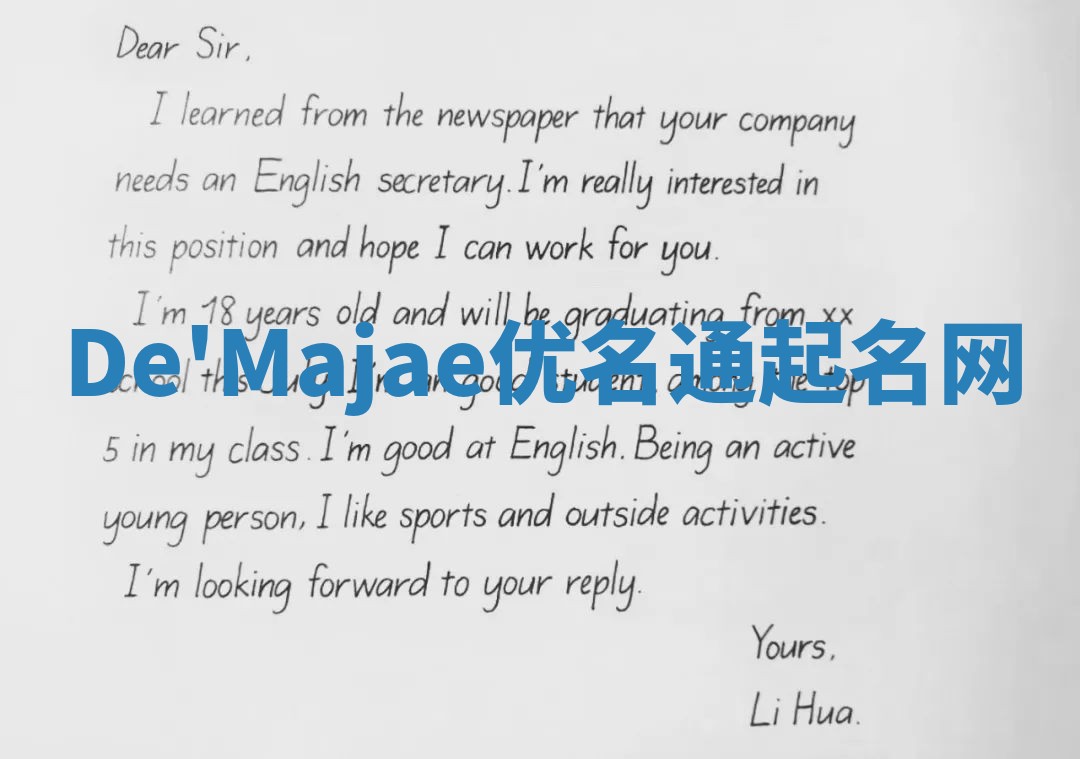 Dear Sir,
I learned from the newspaper that your company
needs an English secretary. I'm really interested in
this position and hope I can work for you.
I'm 18 years old and will be graduating from xx
De'Majae优名通起名网
school this July. I'm an good student, among the top
5 in my class. I'm good at English. Being an active
young person, I like sports and outside activities.
I'm looking forward to your reply.
Yours,
Li Hua.